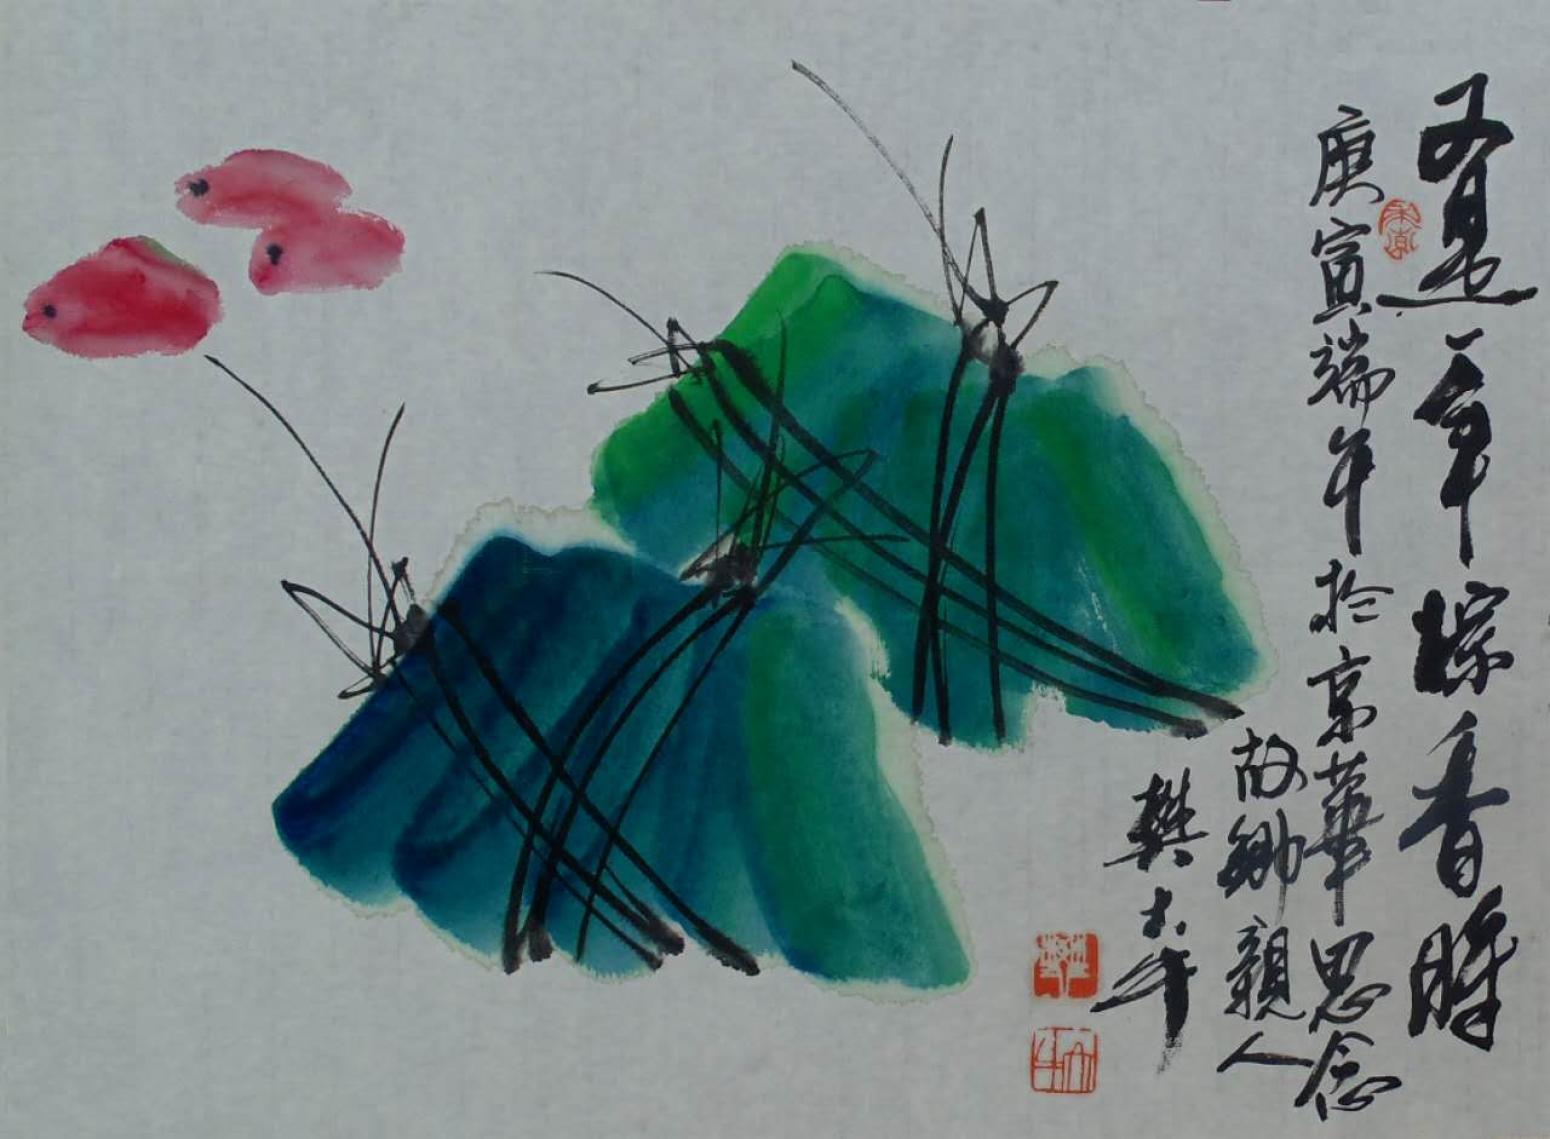 又是一年粽香時
庚寅端午於京華思念
故鄉親人
樊大牛